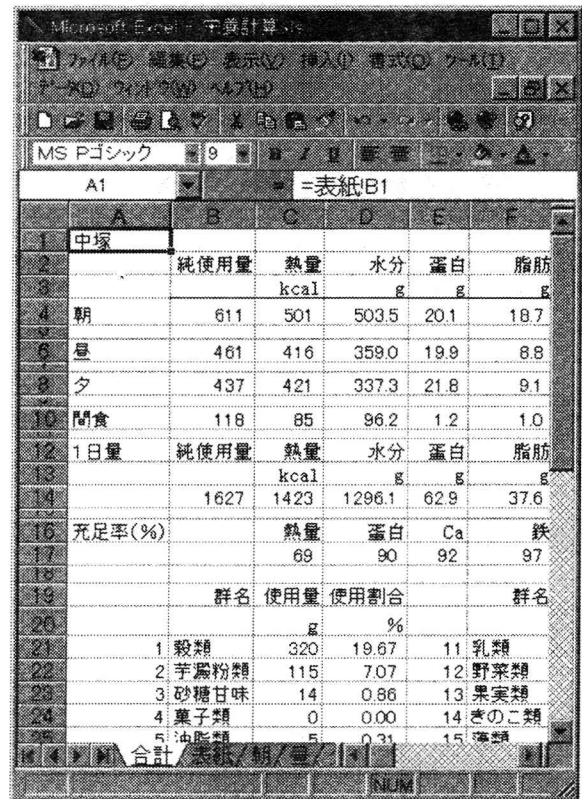 Microsoft Excel - 栄養計算.xls
ファイル(F) 編集(E) 表示(V) 挿入(I) 書式(O) ツール(T)
データ(D) ウィンドウ(W) ヘルプ(H)
MS Pゴシック 9 B I U
A1 = =表紙!B1
A B C D E F
1 中塚
2 純使用量 熱量 水分 蛋白 脂肪
3 kcal g g g
4 朝 611 501 503.5 20.1 18.7
6 昼 461 416 359.0 19.9 8.8
8 夕 437 421 337.3 21.8 9.1
10 間食 118 85 96.2 1.2 1.0
12 1日量 純使用量 熱量 水分 蛋白 脂肪
13 kcal g g g
14 1627 1423 1296.1 62.9 37.6
16 充足率(%) 熱量 蛋白 Ca 鉄
17 69 90 92 97
18
19 群名 使用量 使用割合 群名
20 g %
21 1 穀類 320 19.67 11 乳類
22 2 芋澱粉類 115 7.07 12 野菜類
23 3 砂糖甘味 14 0.86 13 果実類
24 4 菓子類 0 0.00 14 きのこ類
25 5 油脂類 5 0.31 15 藻類
合計 / 表紙 / 朝 / 昼 /
NUM